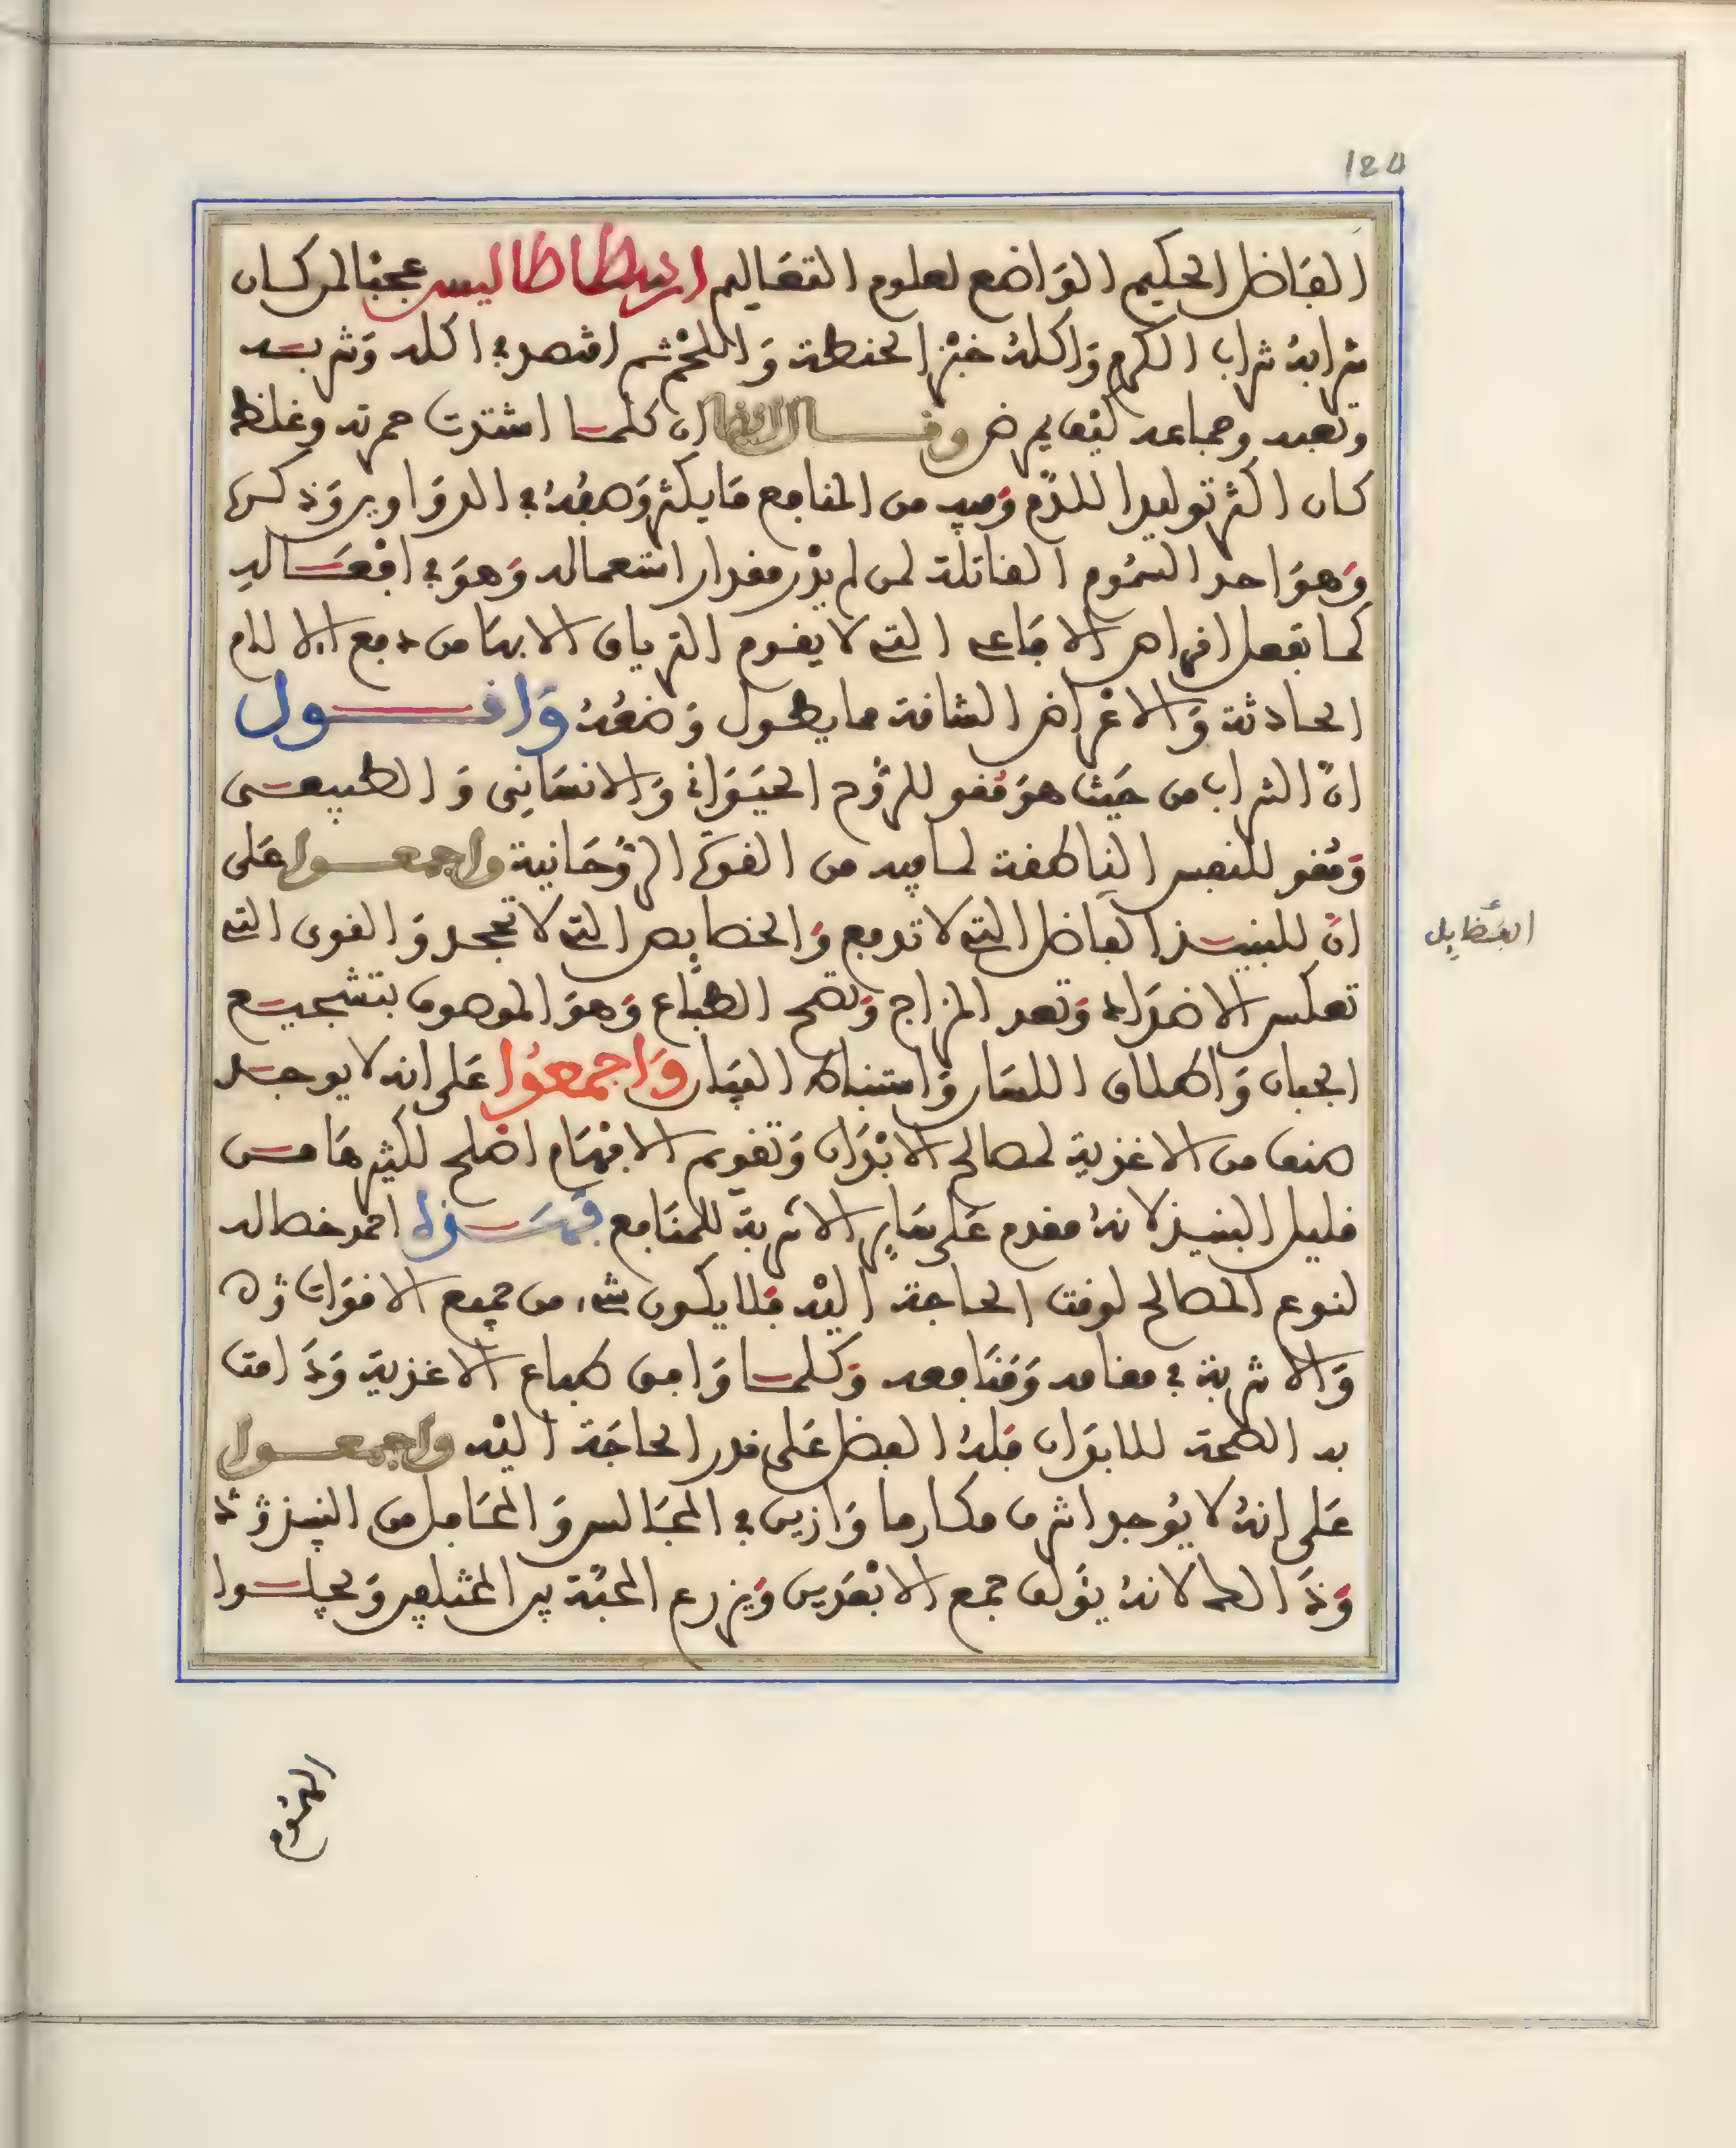 124
الفاضل الحكيم الواضع لعلوم التعاليم ارسطاطاليس عجبا لمن كان
شرابه شراب الكرم واكله خبز الحنطة واللحم ثم اقتصر في اكله وشربه
وتعبه وجماعه كيف يمرض وقال ايضا ان كلما اشتدت حمرته وغلظه
كان اكثر توليدا للدم وفيه من المنافع ما يكثر وصفه في الدواوير وذكرها
وهو احد السموم القاتلة لمن لم يدر مقدار استعماله وهو في افعاله
كما تفعل اقراص الافاعي التي لا يقوم الترياق الا بها من دفع الالام
الحادثة والاعراض الشاقة مما يطول وصفه واقول
ان الشراب من حيث هو مقو للروح الحيواني والانساني والطبيعي
ومقو للنفس الناطقة لما فيه من القوة الروحانية واجمعوا على
ان للنبيذ الفاظل التي لا تدفع والخصايص التي لا تجحد والقوى التي
الفضايل
تعكس الاضداد وتعد المزاج وتصح الطباع وهو الموصوف بتشجيع
الجبان واطلاق اللسان واستنباط البيان واجمعوا على انه لا يوجد
صنف من الاغذية لمصالح الابدان وتقويم الافهام اصلح لكثيرها من
قليل النبيذ لانه مقدم على ساير الاشربة للمنافع احمد خصاله
لنوع المصالح لوقت الحاجة اليه فلا يكون شيء من جميع الاقوات ذه
والاشربة في مقامه ومنافعه وكلما وافق طباع الاغذية ودامت
به الصحة للابدان فله الفضل على قدر الحاجة اليه واجمعوا
على انه لا يوجد اشرف مكارما وازين في المجالس والمحافل من النبيذ
لانه يولف جمع الابعدين ويزرع المحبة بين